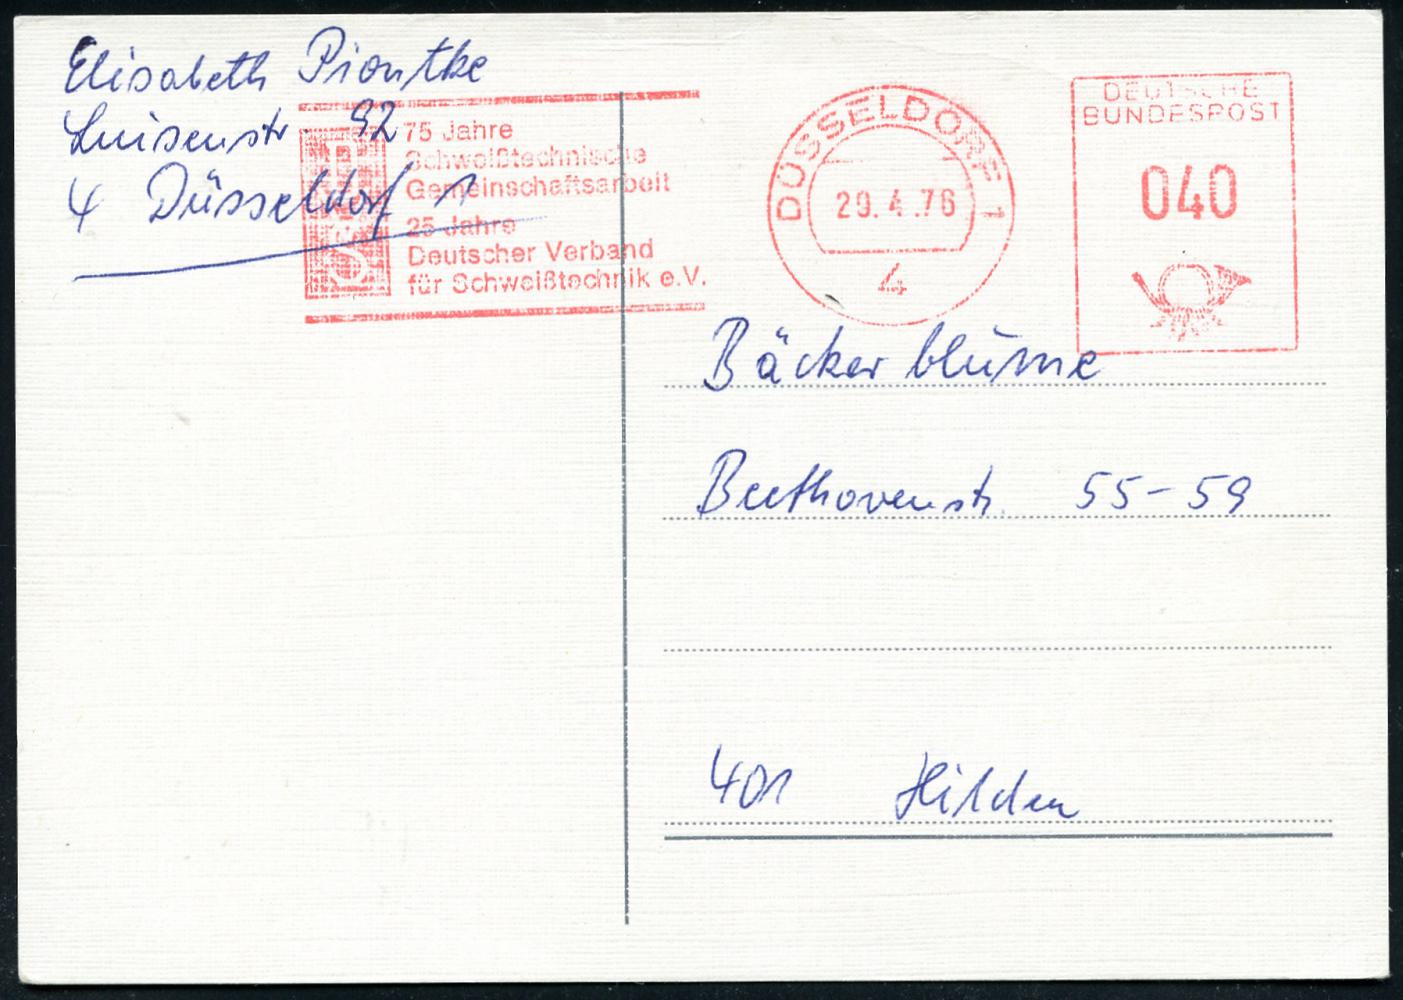 Elisabeth Piontke
Luisenstr. 92
4 Düsseldorf 1
75 Jahre
Schweißtechnische
Gemeinschaftsarbeit
25 Jahre
Deutscher Verband
für Schweißtechnik e.V.
DÜSSELDORF 1
29.4.76
4
DEUTSCHE
BUNDESPOST
040
Bäckerblume
Beethovenstr. 55-59
401 Hilden